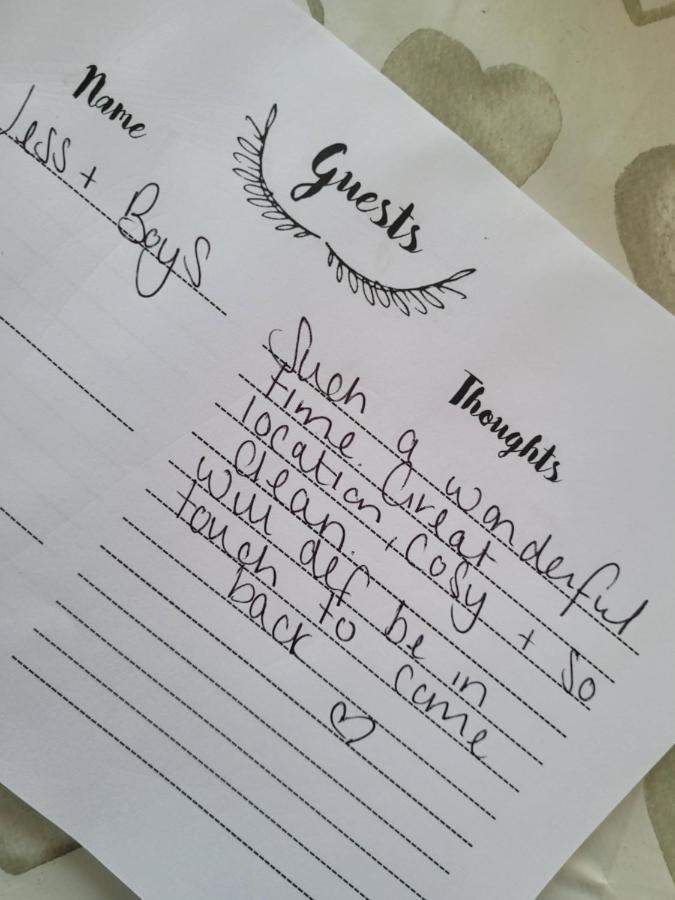 Guests
Name
Jess + Boys
Thoughts
Such a wonderful
time. Great
location + cosy + so
clean.
will def be in
touch to come
back ♡